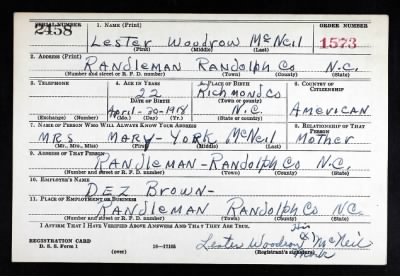 SERIAL NUMBER 1. NAME (Print) ORDER NUMBER
2458 Lester Woodrow McNeil 1573
(First) (Middle) (Last)
2. ADDRESS (Print)
RANDLEMAN RANDOLPH CO N.C.
(Number and street or R. F. D. number) (Town) (County) (State)
3. TELEPHONE 4. AGE IN YEARS 5. PLACE OF BIRTH 6. COUNTRY OF CITIZENSHIP
22 Richmond Co
DATE OF BIRTH (Town or county)
April-20-1918 N.C. AMERICAN
(Exchange) (Number) (Mo.) (Day) (Yr.) (State or country)
7. NAME OF PERSON WHO WILL ALWAYS KNOW YOUR ADDRESS 8. RELATIONSHIP OF THAT PERSON
MRS MARY-YORK McNeil MOTHER
(Mr., Mrs., Miss) (First) (Middle) (Last)
9. ADDRESS OF THAT PERSON
RANDLEMAN-RANDOLPH CO N.C.
(Number and street or R. F. D. number) (Town) (County) (State)
10. EMPLOYER'S NAME
DEZ BROWN-
11. PLACE OF EMPLOYMENT OR BUSINESS
RANDLEMAN RANDOLPH CO N.C.
(Number and street or R. F. D. number) (Town) (County) (State)
I AFFIRM THAT I HAVE VERIFIED ABOVE ANSWERS AND THAT THEY ARE TRUE.
His
REGISTRATION CARD Lester Woodrow X McNeil
D. S. S. Form 1 16-17105 (Registrant's signature)
(over) Mark